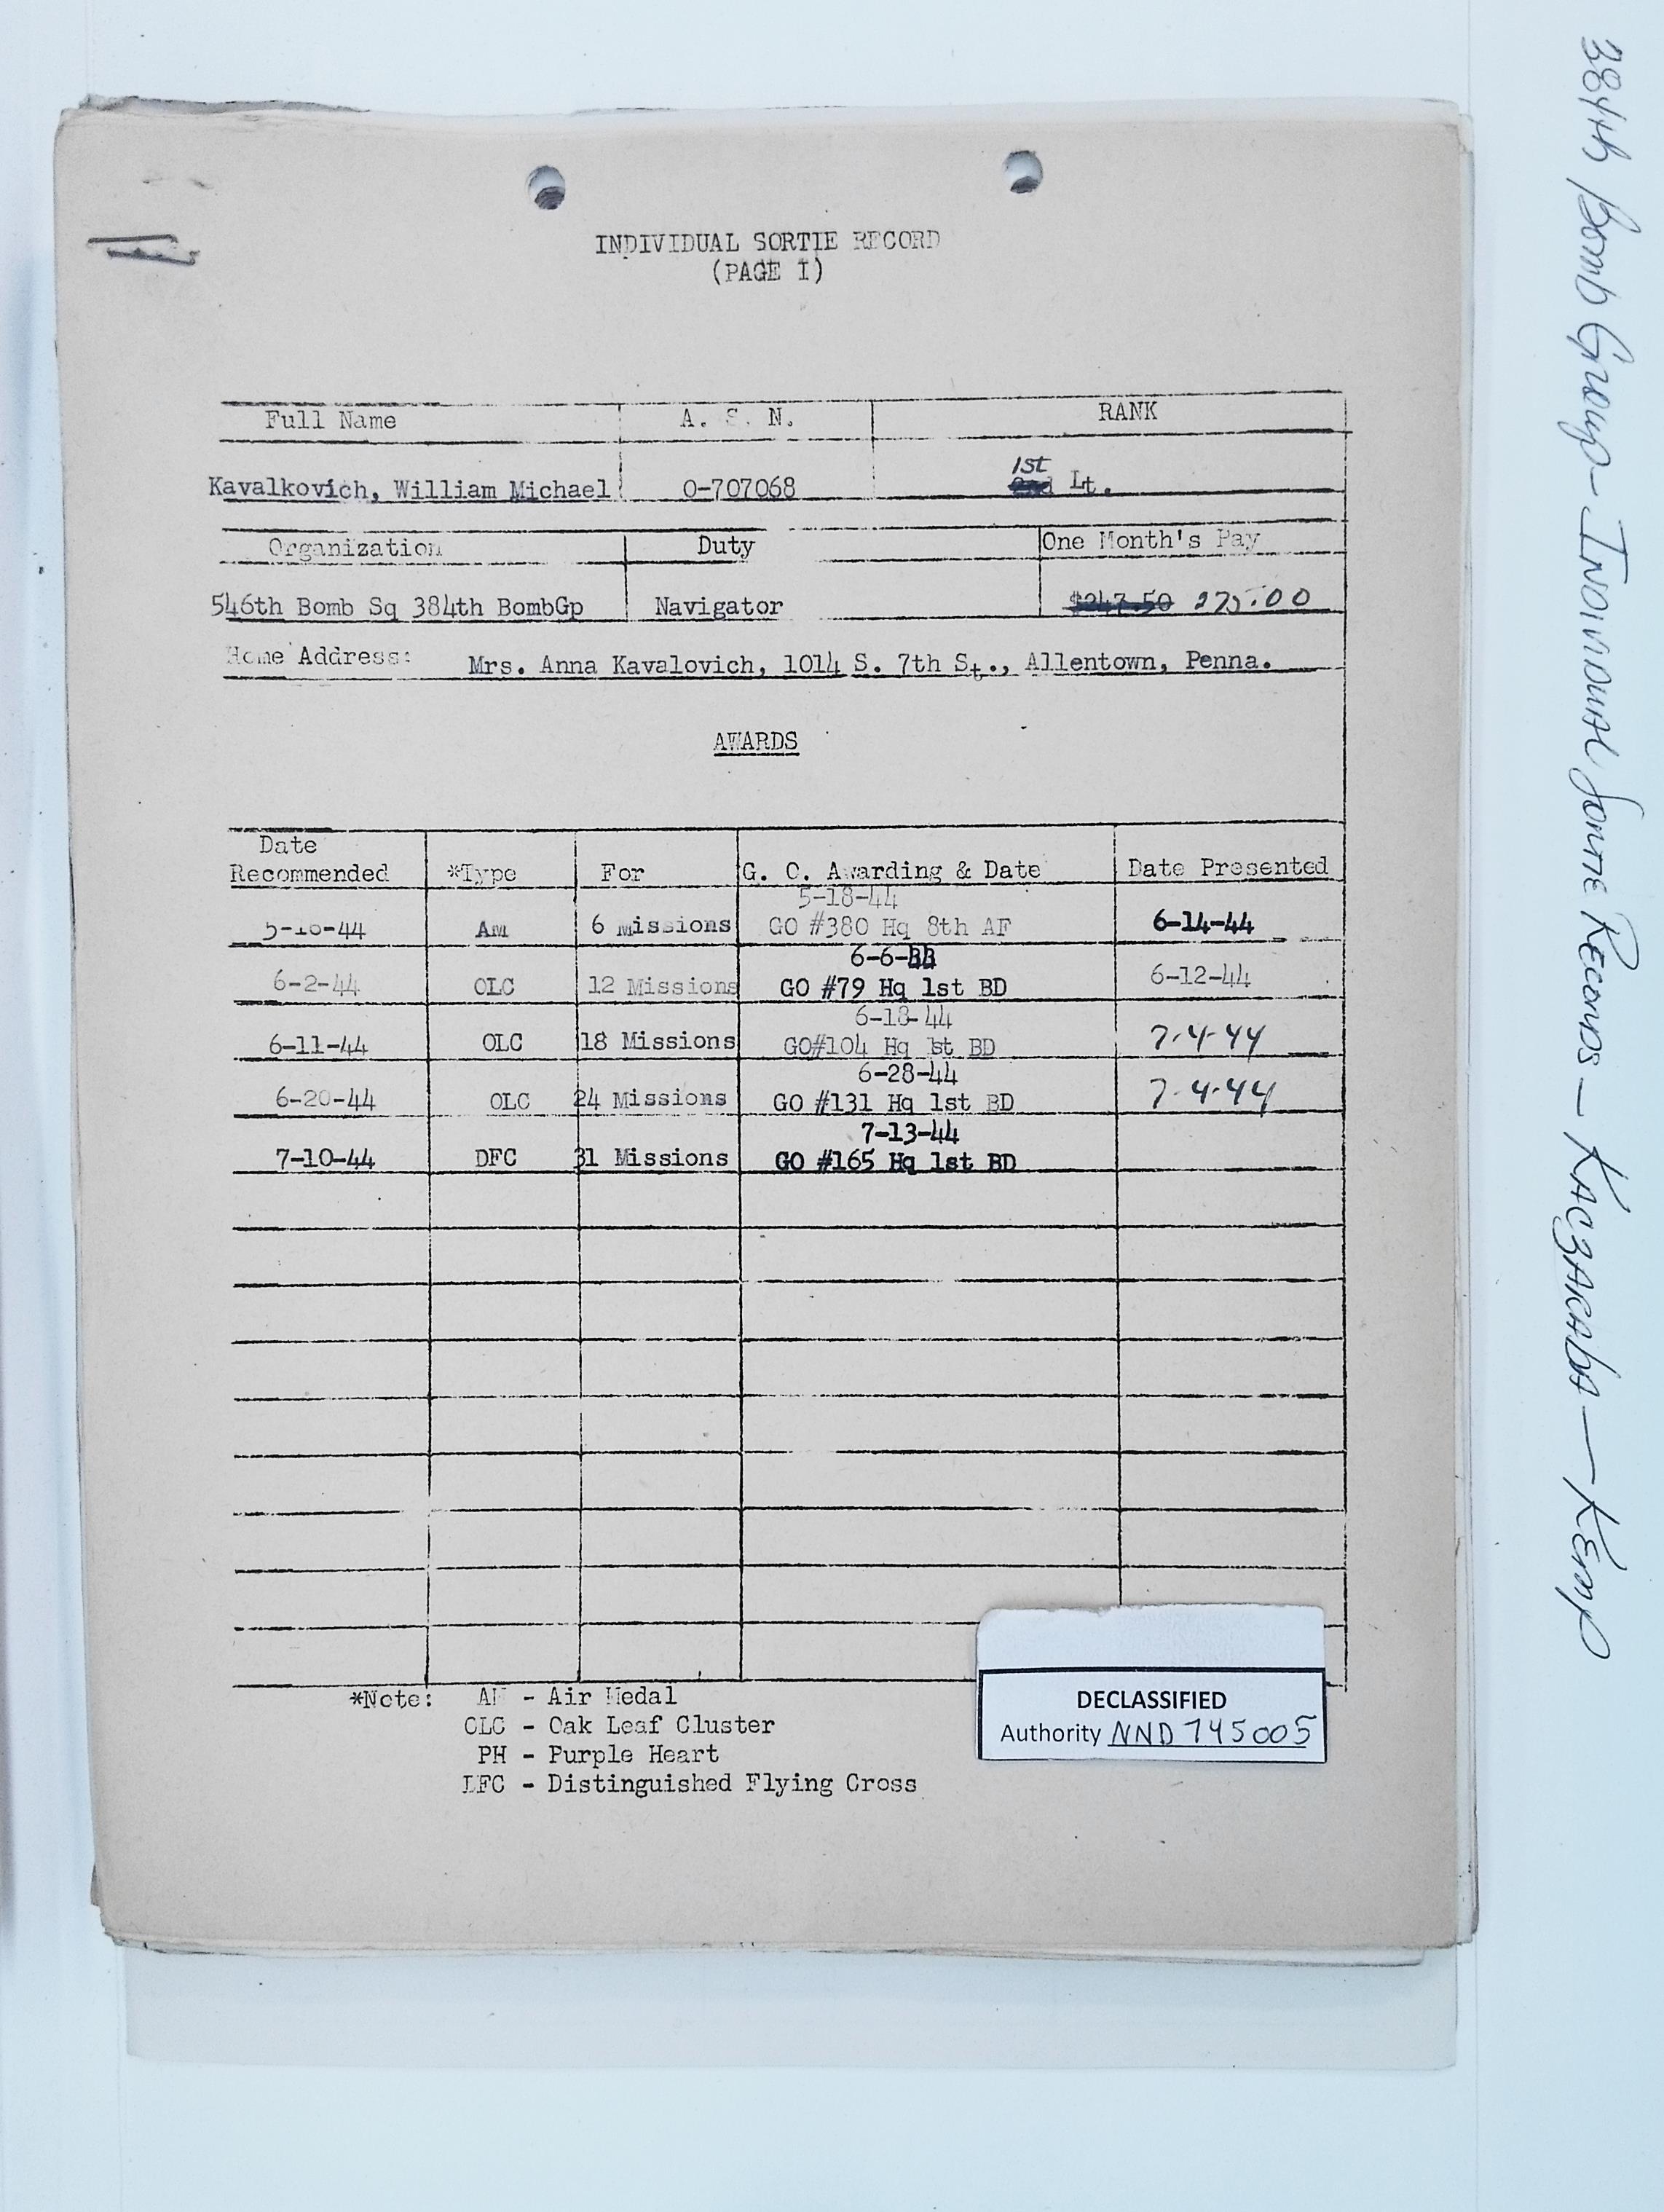 INDIVIDUAL SORTIE RECORD
(PAGE I)
Full Name A. S. N. RANK
1st
Kavalkovich, William Michael 0-707068 2nd Lt.
Organization Duty One Month's Pay
546th Bomb Sq 384th BombGp Navigator $247.50 275.00
Home Address: Mrs. Anna Kavalovich, 1014 S. 7th St., Allentown, Penna.
AWARDS
Date
Recommended *Type For G. O. Awarding & Date Date Presented
5-18-44
5-16-44 AM 6 missions GO #380 Hq 8th AF 6-14-44
6-6-44
6-2-44 OLC 12 Missions GO #79 Hq 1st BD 6-12-44
6-18-44
6-11-44 OLC 18 Missions GO#104 Hq 1st BD 7-4-44
6-28-44
6-20-44 OLC 24 Missions GO #131 Hq 1st BD 7-4-44
7-13-44
7-10-44 DFC 31 Missions GO #165 Hq 1st BD
*Note: AM - Air Medal
OLC - Oak Leaf Cluster
PH - Purple Heart
DFC - Distinguished Flying Cross
DECLASSIFIED
Authority NND 745005
384th Bomb Group - Individual Sortie Records - Kaczaraba - Kemp